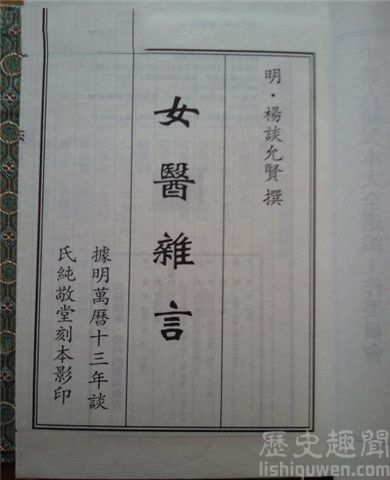 明·楊談允賢撰
女醫雜言
據明萬曆十三年談
氏純敬堂刻本影印
歷史趣聞
lishiquwen.com